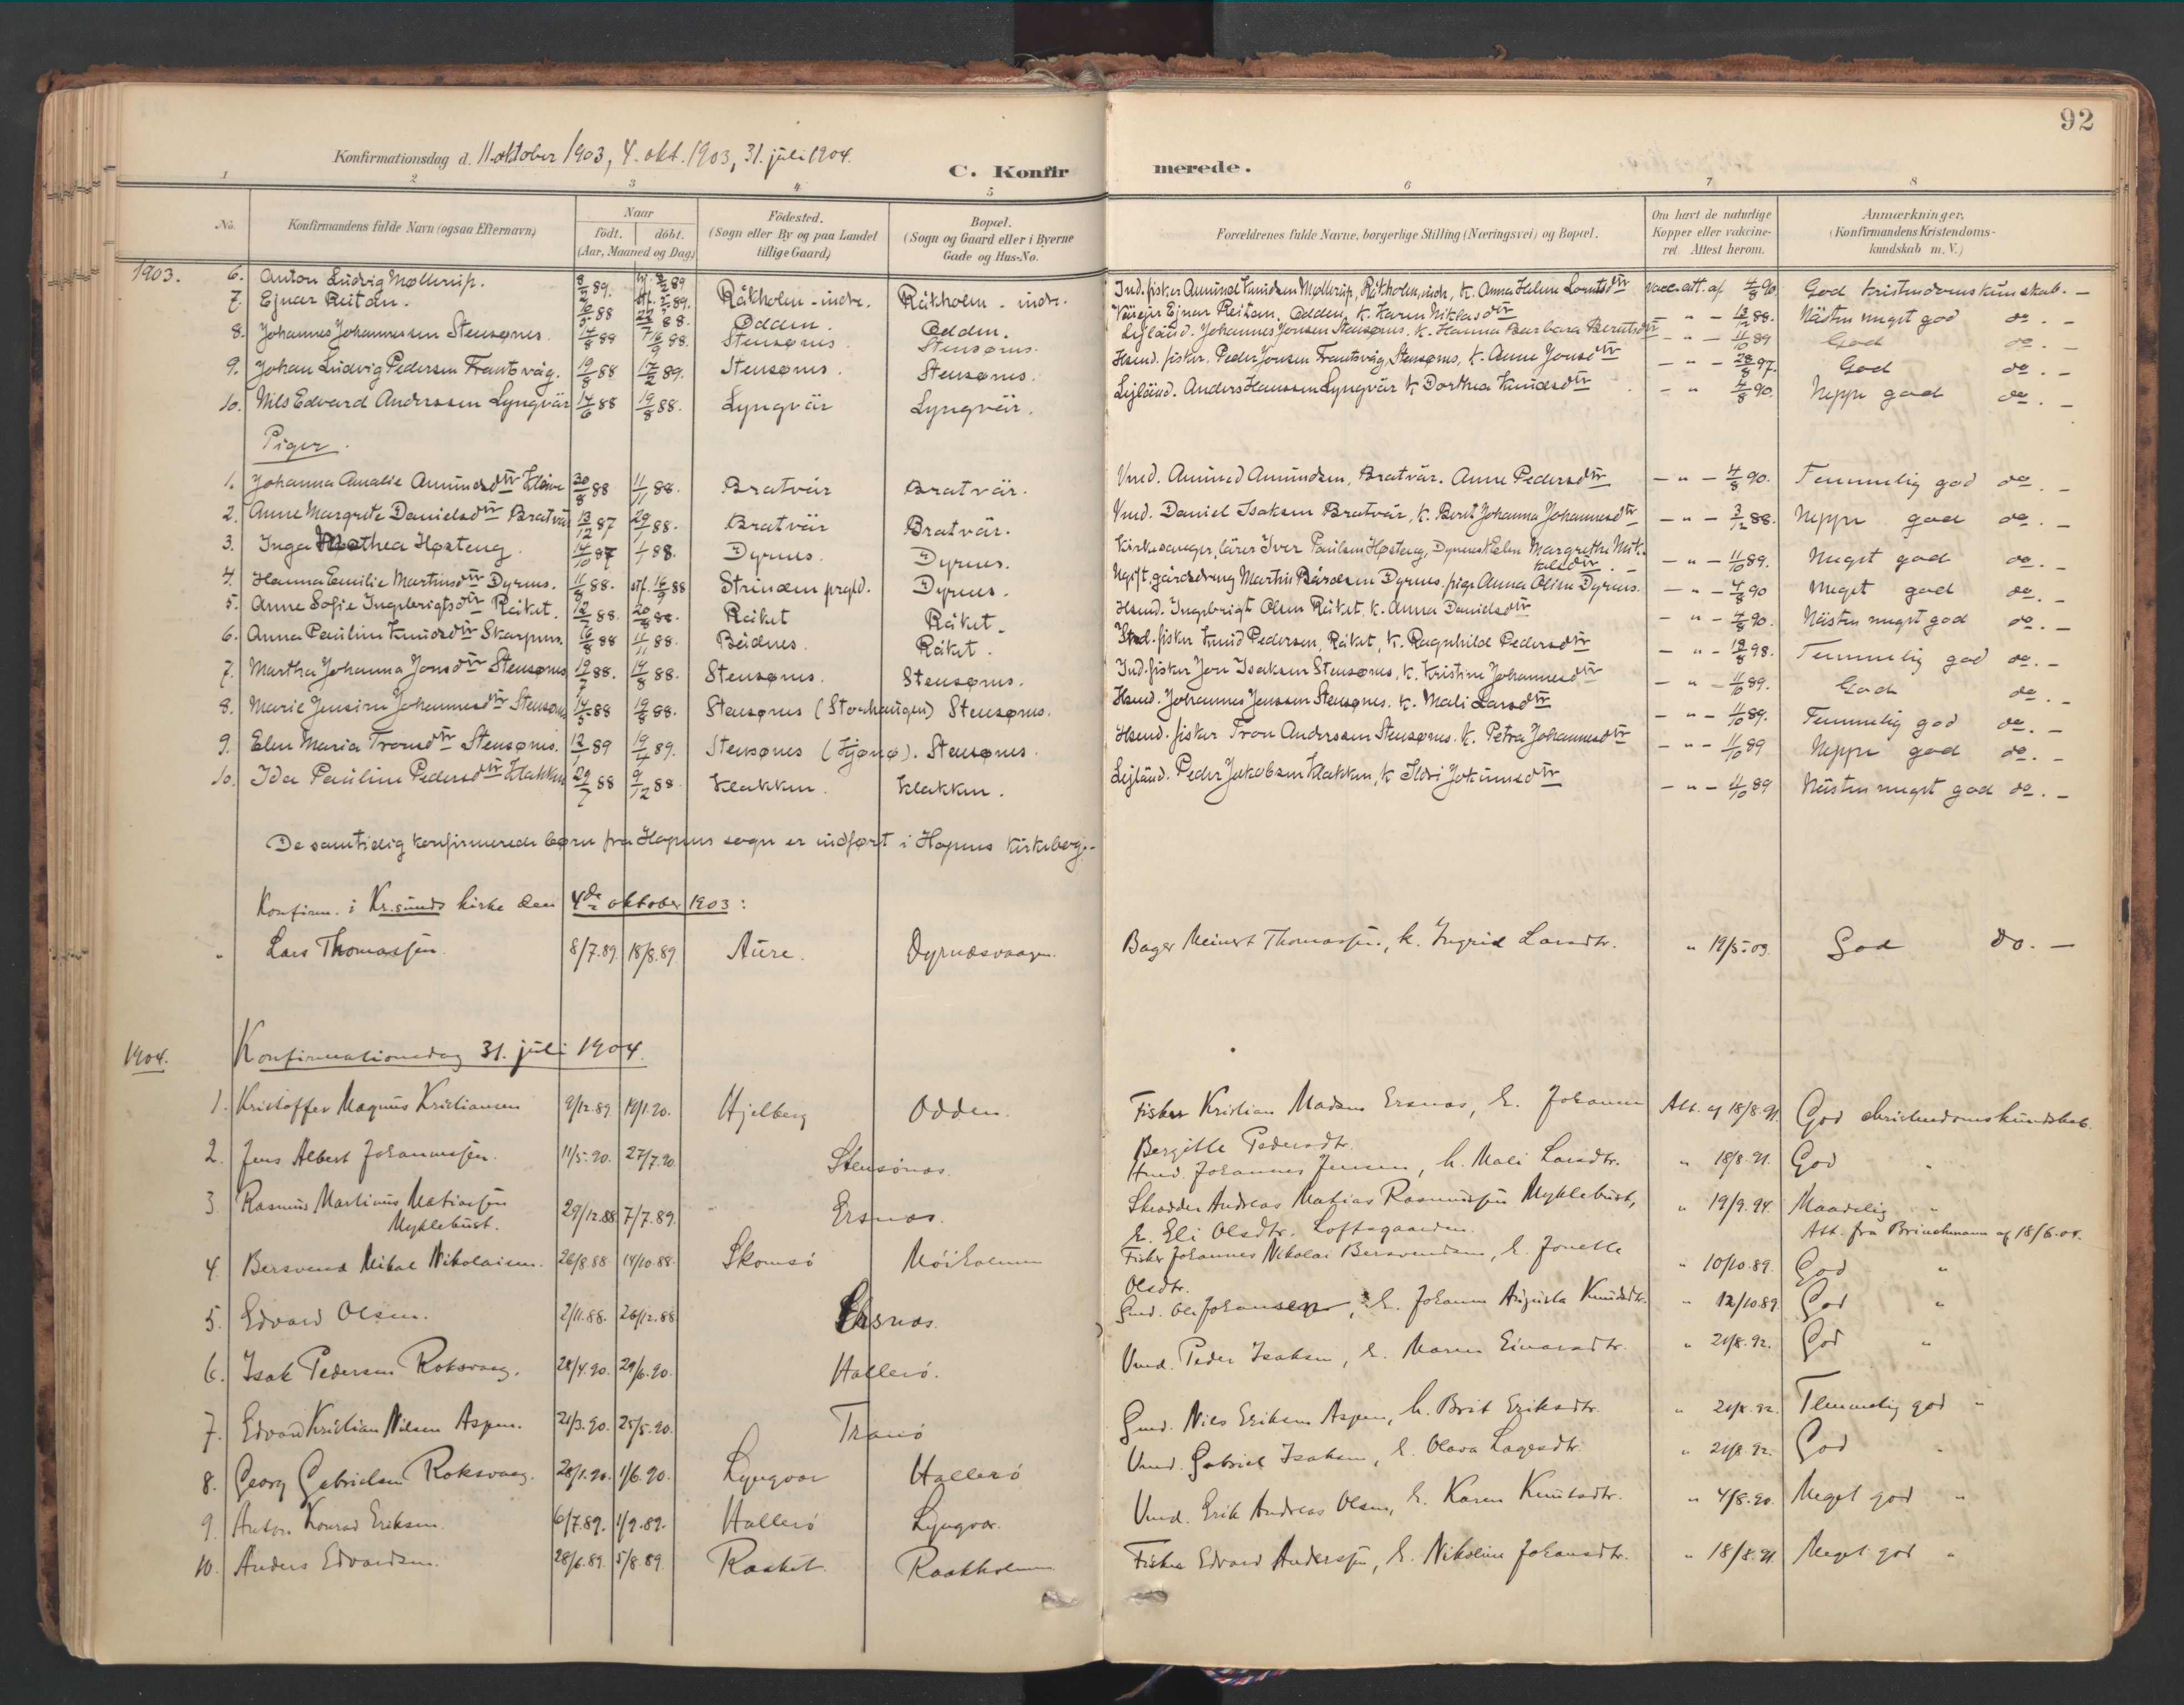 92
Konfirmationsdag d. 11. oktober 1903, 4. okt. 1903, 31. juli 1904.
C. Konfir merede.
1 2 3 4 5 6 7 8
No. Konfirmandens fulde Navn (ogsaa Efternavn)
Naar født. døbt. (Aar, Maaned og Dag)
Födested. (Sogn eller By og paa Landet tillige Gaard)
Bopæl. (Sogn og Gaard eller i Byerne Gade og Hus-No.
Forældrenes fulde Navne, borgerlige Stilling (Næringsvei) og Bopæl.
Om havt de naturlige Kopper eller vaccineret. Attest herom.
Anmærkninger. (Konfirmandens Kristendomskundskab m. V.)
1903. 6. Anton Ludvig Møllerup. 8/2 89. Råkholm - indre. Råkholm - indre. Ind. fisker Amund Knudsen Møllerup, Råkholm, indre, k. Anna Helene Lorntsdtr Vacc. att. af 4/8 90. God kristendomskundskab. -
7. Ejnar Reitan. 88 88. Odden. Odden. Ejnar Reitan, Odden, k. Karen Niklasdtr - " - 13/12 88. Nästen meget god do. -
8. Johannes Johannessen Stensønes. 14/8 89 Stensønes. Stensønes. Lejländ. Johannes Jonsen Stensønes, k. Hanna Barbara Berntsdtr - " - 11/10 89 God do. -
9. Johan Ludvig Pedersen Frantsvåg. 19/8 88 17/2 89. Stensønes. Stensønes. Hsmd. fisker. Peder Jonsen Frantsvåg, Stensønes, k. Anne Jonsdtr - " 28/8 97. God do. -
10. Nils Edvard Anderssen Lyngvär 14/6 88 19/8 88. Lyngvär Lyngvär. Lejländ. Anders Hanssen Lyngvär k. Dorthea Knudsdtr - " 4/8 90. Neppe god do. -
Piger.
1. Johanna Amalie Amundsdtr 30/8 88 11/11 88. Bratvär Bratvär. Vmd. Amund Amundsen, Bratvär. Anne Pedersdtr - " - 4/8 90. Temmelig god do. -
2. Anne Margrete Danielsdtr Bratvär 13/12 87 29/1 88. Bratvär Bratvär. Vmd. Daniel Isaksen Bratvär, k. Beret Johanna Johannesdtr - " - 3/12 88. Neppe god do. -
3. Inga Mathea Høsteng. 14/10 87 88. Dyrnes. Dyrnes. Kirkesanger, lärer Iver Paulsen Høsteng, Dyrnes k. Elen Margrethe - " - 11/10 89. Meget god do. -
4. Hanna Emilie Martinsdtr Dyrnes. 11/8 88. 16/9 88 Strinden prgld. Dyrnes. Ugift gårddreng Martin Bårdsen Dyrnes, pige Anna Oline Dyrnes. - " - 4/8 90 Meget god do. -
5. Anne Sofie Ingebrigtsdtr Råket. 12/7 88. 20/8 88. Råket Råket. Hsmd. Ingebrigt Olsen Råket, k. Anna Danielsdtr - " - 4/8 90. Nästen meget god do. -
6. Anna Pauline Knudsdtr Skarpnes. 16/8 88 11/11 88. Bådnes. Råket. Ind. fisker Knud Pedersen, Råket, k. Ragnhild Pedersdtr - " - 18/8 98. Temmelig god do. -
7. Martha Johanna Jonsdtr Stensønes 19/7 88. 19/8 88. Stensønes. Stensønes. Ind. fisker Jon Isaksen Stensønes, k. Kristine Johannesdtr - " - 11/10 89. God do. -
8. Marie Jensine Johannesdtr Stensønes 14/5 88 19/8 88. Stensønes (Storhaugen) Stensønes. Hsmd. Johannes Jenssen Stensønes. k. Mali Larsdtr - " - 11/10 89. Temmelig god do. -
9. Elen Maria Tronsdtr Stensønes. 12/1 89 19/4 89. Stensønes (Hjønø). Stensønes. Hsmd. fisker Tron Anderssen Stensønes. k. Petra Johannesdtr - " - 11/10 89 Neppe god do. -
10. Ida Pauline Pedersdtr Klakken 29/7 88 9/12 88. Klakken. Klakken. Lejländ. Peder Jakobsen Klakken, k. Ildri Jokumsdtr - " - 11/10 89 Nästen meget god do. -
De samtidig konfirmerede børn fra Hopens sogn er indført i Hopens kirkebog.-
Konfirm. i Kr.sunds kirke den 4de oktober 1903:
" Lars Thomassen. 8/7.89. 18/8.89. Aure. Dyrnesvaagen. Bager Meinert Thomassen, k. Ingrid Larsdtr. " 19/5.03. God do. -
1904. Konfirmationsdag 31. juli 1904.
1. Kristoffer Magnus Kristiansen 9/12.89 19/1.90. Hjelberg Odden. Fisker Kristian Madsen Ersnæs, k. Johanna Bergitte Pedersdtr. Att. af 18/8.91. God christendomskundskab.
2. Jens Albert Johannessen. 11/5.90. 27/7.90. Stensönæs. Hmd. Johannes Jensen, k. Mali Larsdtr. " 18/8.91. God "
3 Rasmus Martinus Matiassen Myklebust. 29/12.88 7/7.89. Ersnæs. Skrædder Andreas Matias Rasmussen Myklebust, k. Eli Olsdtr. Loftsgaarden. " 19/9.94. Maadelig " Att. fra Brinchmann af 18/6.04.
4. Bersvend Mikal Nikolaisen. 26/8.88 14/10.88. Skomsö Möiholmen Fisker Johannes Nikolai Bersvendsen, k. Jonette Olsdtr. " 10/10.89. God "
5. Edvard Olsen. 2/11.88. 26/12.88 Ersnæs. Gmd. Ole Johansen, k. Johanna Augusta Knudsdtr. " 12/10.89. God "
6. Isak Pedersen Roksvaag. 28/4.90. 29/6.90. Hallerö. Vmd. Peder Isaksen, k. Maren Einarsdtr. " 21/8.92. God "
7. Edvard Kristian Nilsen Aspen. 21/3.90. 25/5.90. Tranö Gmd. Nils Eriksen Aspen, k. Brit Eriksdtr. " 21/8.92. Temmelig god "
8. Georg Gabrielsen Roksvaag. 28/1.90. 1/6.90. Lyngvær Hallerö Vmd. Gabriel Isaksen, k. Olava Lagesdtr. " 21/8.92. God "
9. Anton Konrad Eriksen. 6/7.89. 1/9.89. Hallerö Lyngvær. Vmd. Erik Andreas Olsen, k. Karen Knutsdtr. " 4/8.90. Meget god "
10. Anders Edvardsen. 28/6.89. 5/8.89. Raaket. Raakholmen Fisker Edvard Anderssen, k. Nikoline Johansdtr. " 18/8.91. Meget god "